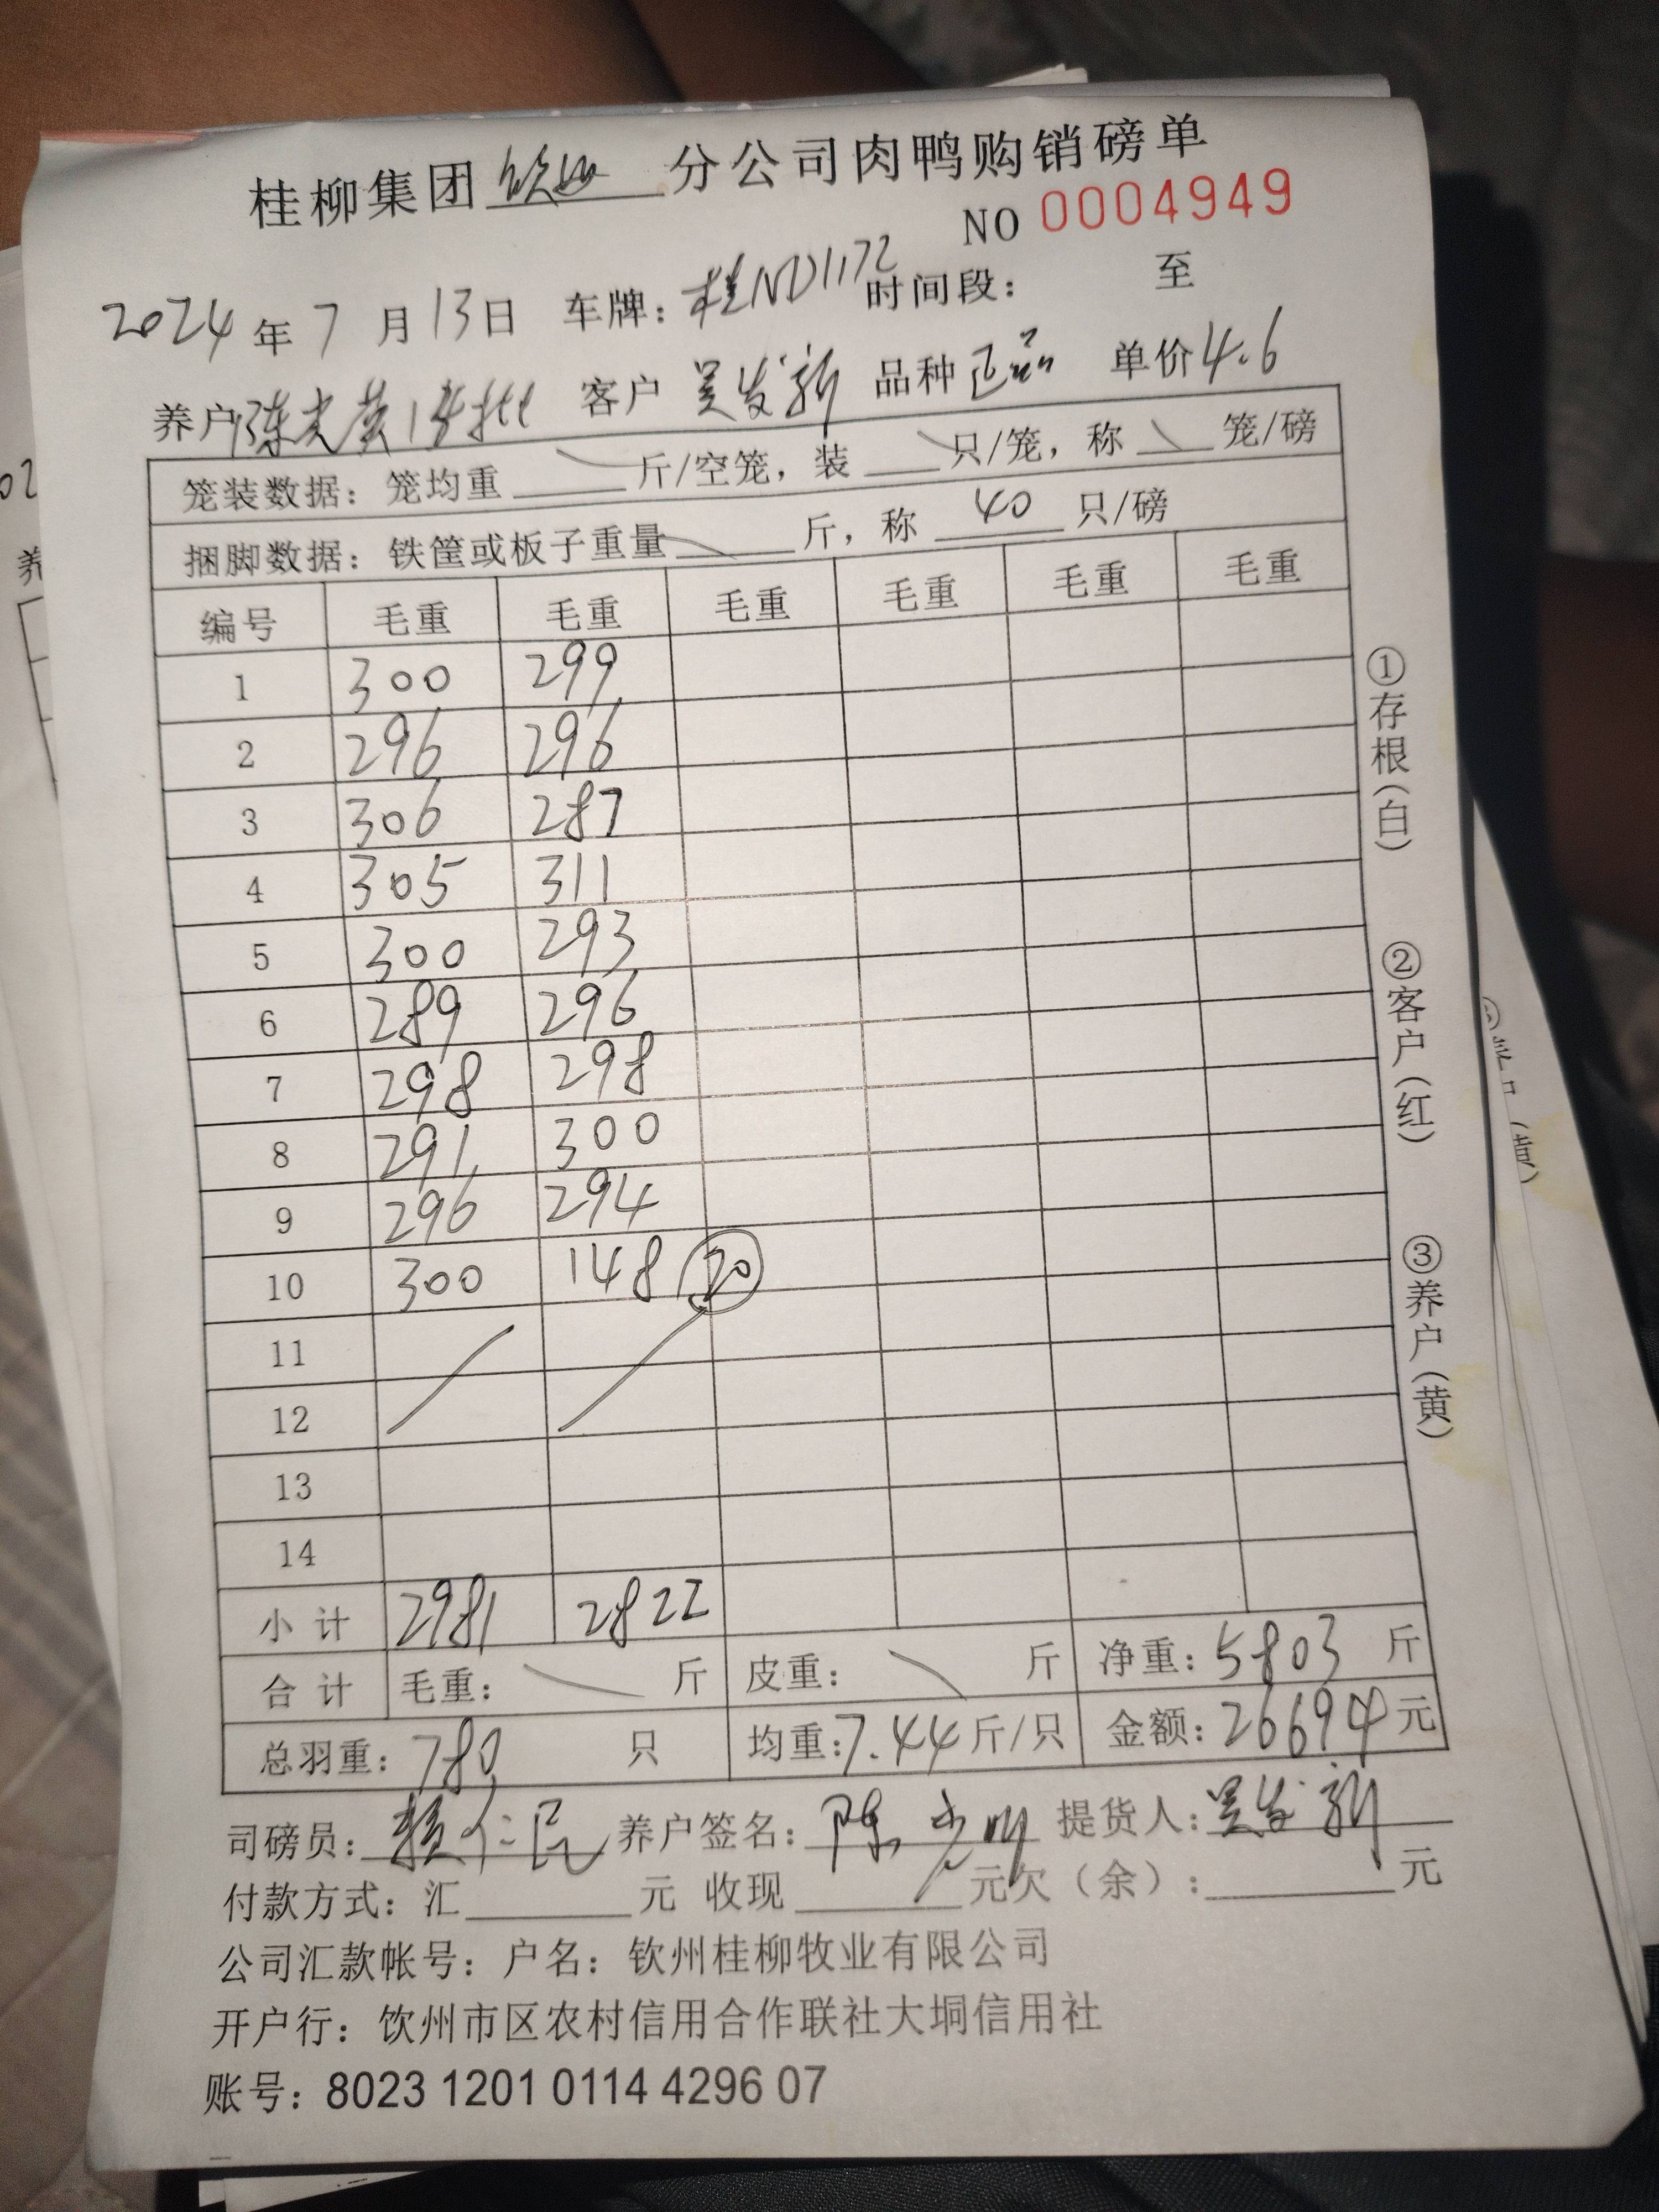 桂柳集团钦州分公司肉鸭购销磅单
NO 0004949
2024年7月13日 车牌：桂ND1172 时间段： 至
养户陈光英1号批 客户 吴发新 品种 正品 单价4.6
笼装数据：笼均重 斤/空笼，装 只/笼，称 笼/磅
捆脚数据：铁筐或板子重量 斤，称 40 只/磅
编号 毛重 毛重 毛重 毛重 毛重 毛重
1 300 299
2 296 296
3 306 287
4 305 311
5 300 293
6 289 296
7 298 298
8 291 300
9 296 294
10 300 148 20
11
12
13
14
小计 2981 2822
合计 毛重： 斤 皮重： 斤 净重：5803 斤
总羽重：780 只 均重：7.44斤/只 金额：26694元
司磅员： 仁民 养户签名：陈光 提货人：吴发新
付款方式：汇 元 收现 元欠（余）： 元
公司汇款帐号：户名：钦州桂柳牧业有限公司
开户行：饮州市区农村信用合作联社大垌信用社
账号：8023 1201 0114 4296 07
①存根（白）
②客户（红）
③养户（黄）